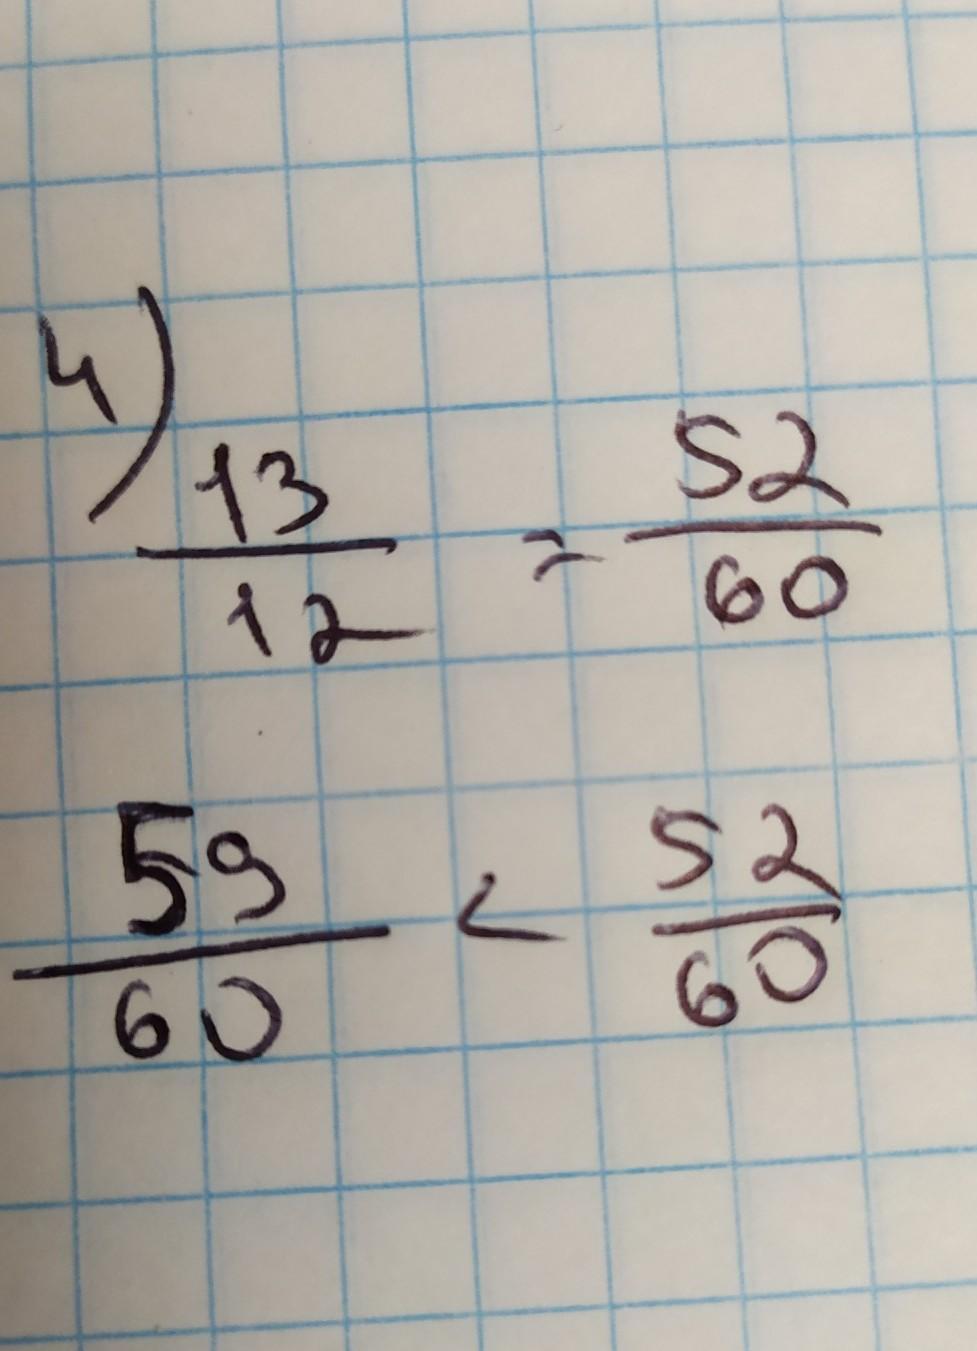 4)
13/12 = 52/60
59/60 < 52/60